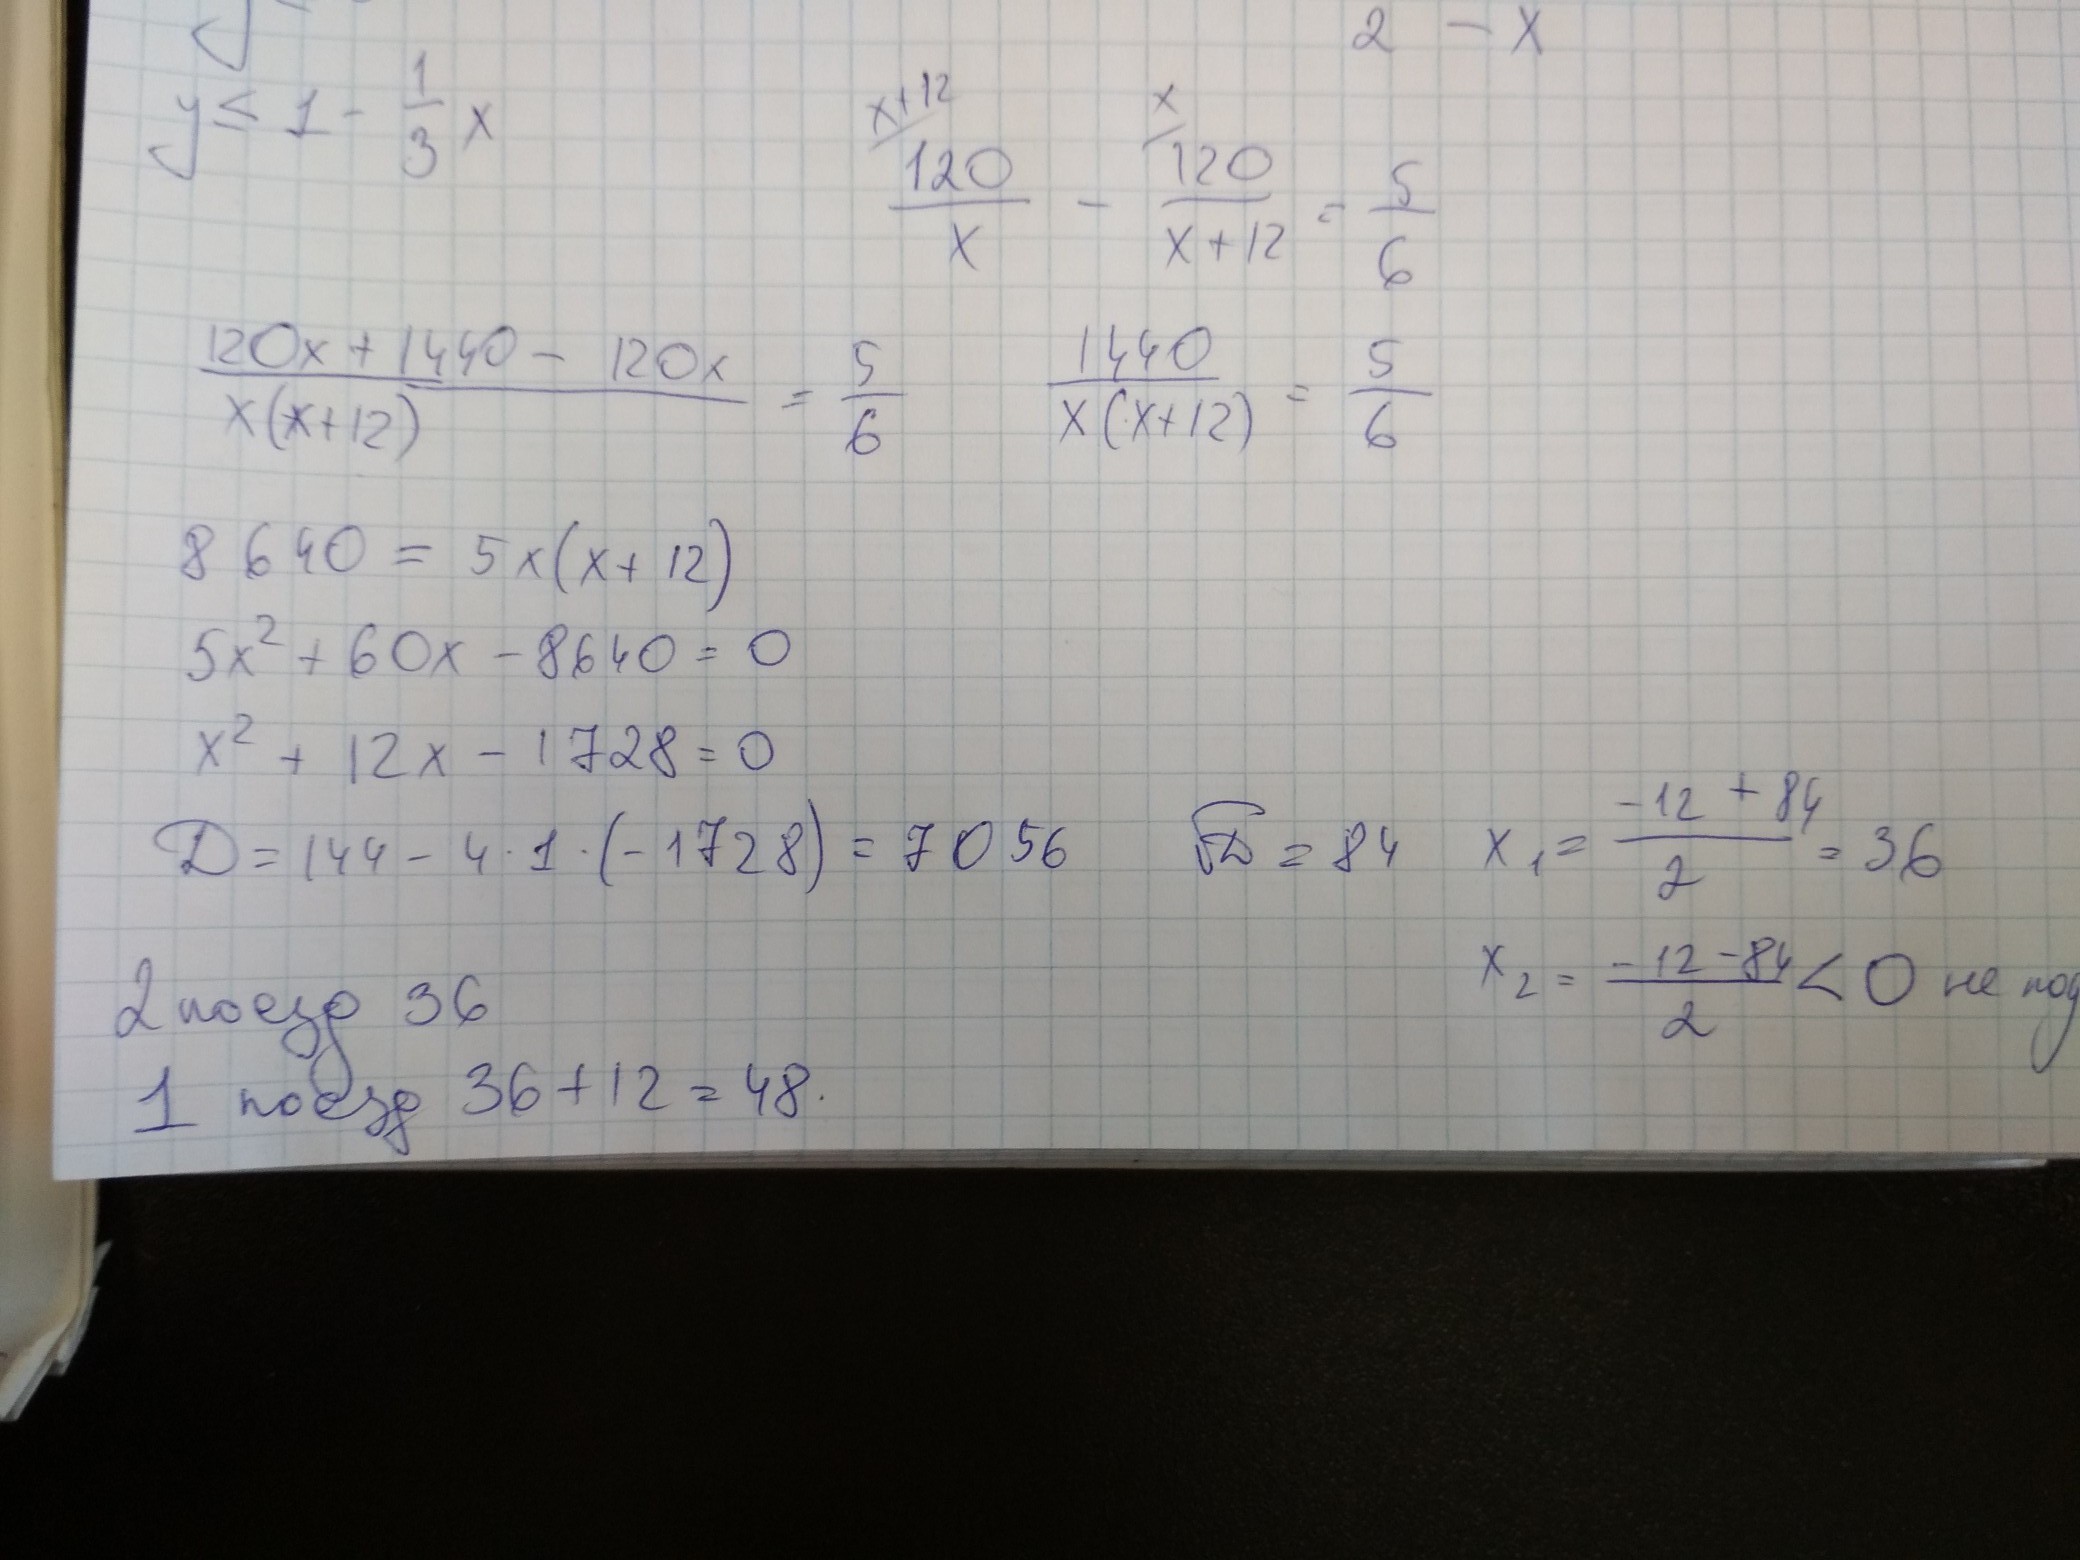 2 - x
y ≤ 1 - 1/3 x
x+12/ 120/x - x/ 120/(x+12) = 5/6
(120x + 1440 - 120x)/(x(x+12)) = 5/6 1440/(x(x+12)) = 5/6
8640 = 5x(x+12)
5x² + 60x - 8640 = 0
x² + 12x - 1728 = 0
D = 144 - 4·1·(-1728) = 7056 √D = 84 x₁ = (-12+84)/2 = 36
x₂ = (-12-84)/2 < 0 не под
2 поезд 36
1 поезд 36+12=48.